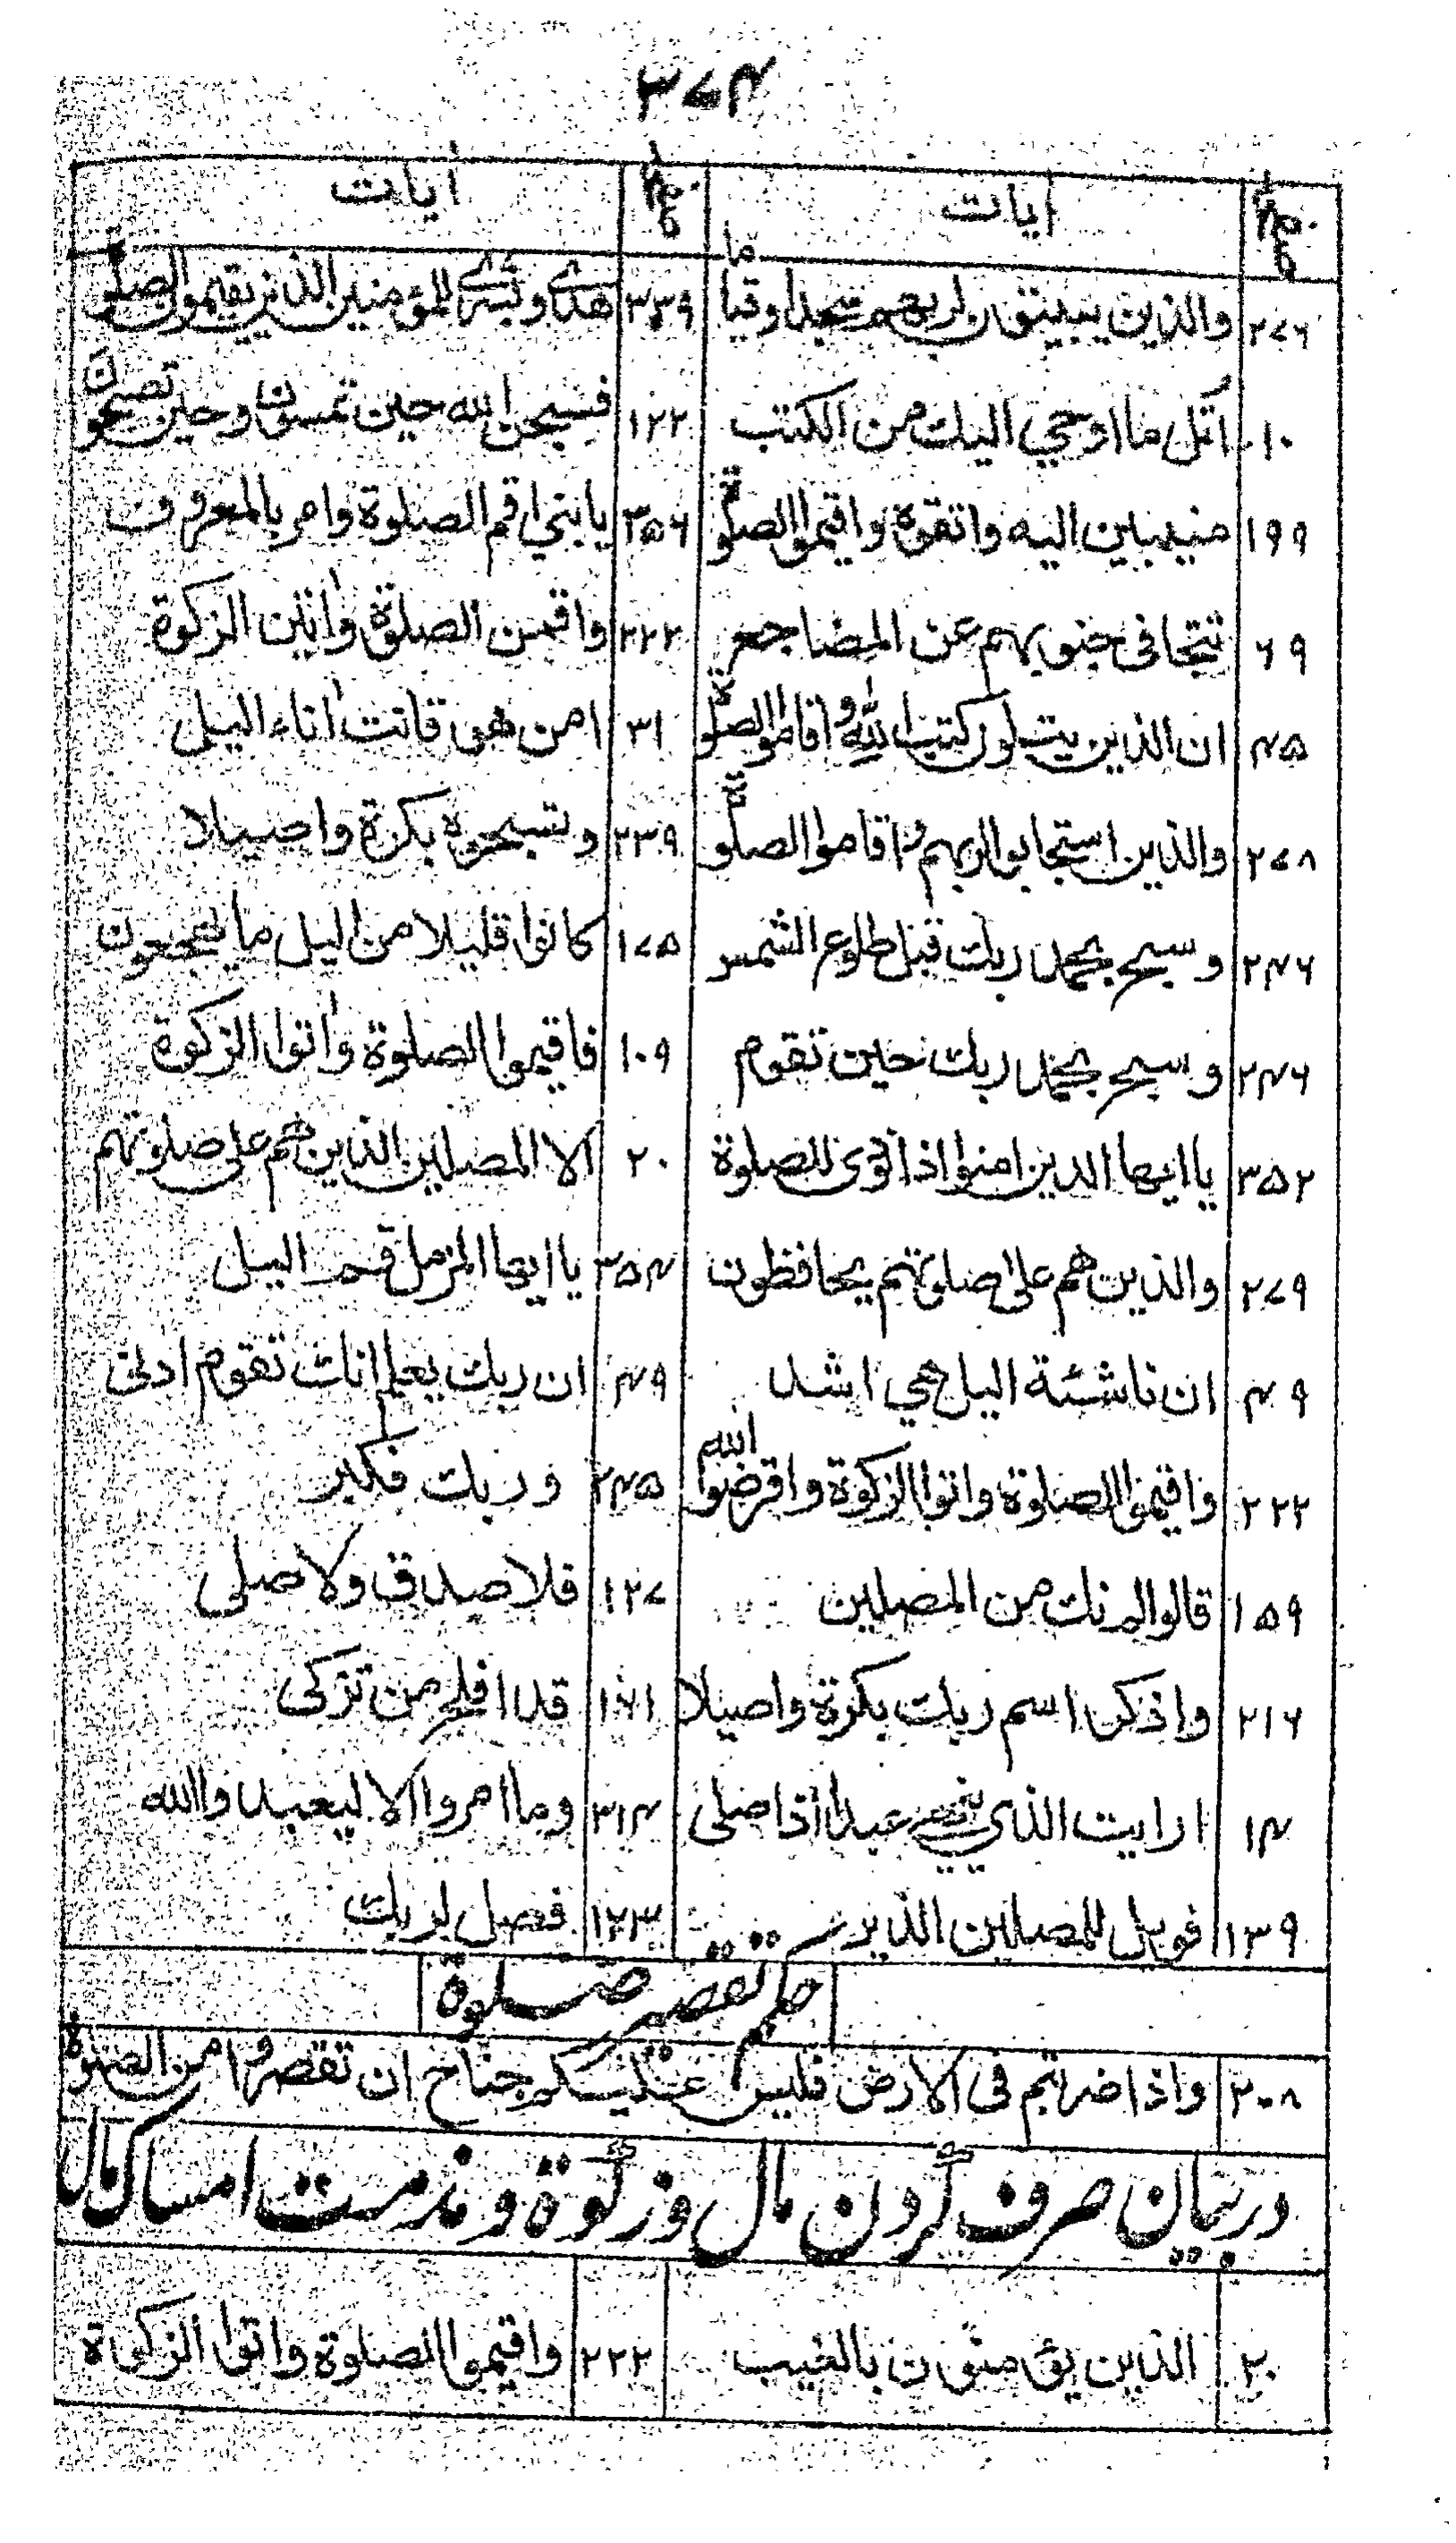 ۳۷۴
صفحہ آیات صفحہ آیات
۲۷۶ والذین یبیتون لربهم سجدا وقیاما ۳۳۹ هدی وبشری للمؤمنین الذین یقیمون الصلوة
۱۰ اتل ما اوحی الیك من الکتب ۱۲۲ فسبحن الله حین تمسون وحین تصبحون
۱۹۹ منیبین الیه واتقوه واقیموا الصلوة ۳۵۶ یا بنی اقم الصلوة وامر بالمعروف
۶۹ تتجافی جنوبهم عن المضاجع ۲۲۲ واقمن الصلوة واٰتین الزکوة
۴۵ ان الذین یتلون کتب الله واقاموا الصلوة ۳۱ امن هو قانت اٰناء الیل
۲۷۸ والذین استجابوا لربهم واقاموا الصلوة ۲۳۹ وتسبحوه بکرة واصیلا
۲۴۶ وسبح بحمد ربك قبل طلوع الشمس ۱۷۵ کانوا قلیلا من الیل ما یهجعون
۲۴۶ وسبح بحمد ربك حین تقوم ۱۰۹ فاقیموا الصلوة واٰتوا الزکوة
۳۵۲ یا ایها الذین امنوا اذا نودی للصلوة ۲۰ الا المصلین الذین هم علی صلوتهم
۲۷۹ والذین هم علی صلوتهم یحافظون ۳۵۴ یا ایها المزمل قم الیل
۴۹ ان ناشئة الیل هی اشد ۴۹ ان ربك یعلم انك تقوم ادنی
۲۲۲ واقیموا الصلوة واتوا الزکوة واقرضوا الله ۲۴۵ وربك فکبر
۱۵۹ قالوا لم نك من المصلین ۱۲۷ فلا صدق ولا صلی
۲۱۶ واذکر اسم ربك بکرة واصیلا ۱۷۱ قد افلح من تزکی
۱۴ ارایت الذی ینهی عبدا اذا صلی ۳۱۴ وما امروا الا لیعبدوا الله
۱۳۹ فویل للمصلین الذین ۱۲۳ فصل لربك
حکم قصر صلوة
۲۰۸ واذا ضربتم فی الارض فلیس علیکم جناح ان تقصروا من الصلوة
در بیان صرف کردن مال و زکوة و مذمت امساک مال
۲۰ الذین یؤمنون بالغیب ۲۲۲ واقیموا الصلوة واتوا الزکوة